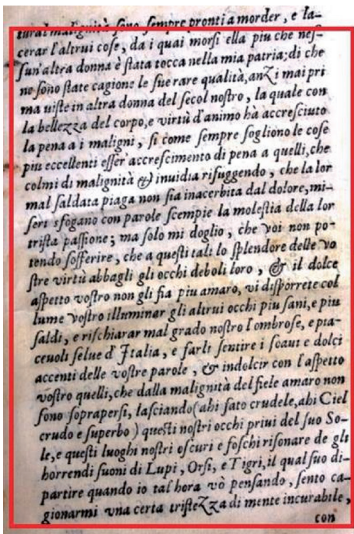 tural malignità sono sempre pronti a morder, e la-
cerar l'altrui cose, da i quai morsi ella piu che nes-
sun'altra donna è stata tocca nella mia patria; di che
no sono state cagione le sue rare qualità, anzi mai pri
ma uiste in altra donna del secol nostro, la quale con
la bellezza del corpo, e virtù d'animo hà accresciuto
la pena a i maligni, si come sempre sogliono le cose
piu eccellenti esser accrescimento di pena a quelli, che
colmi di malignità & inuidia rifuggendo, che la lor
mal saldata piaga non sia inacerbita dal dolore, mi-
seri sfogano con parole scempie la molestia della lor
trista passione; ma solo mi doglio, che voi non po-
tendo sofferire, che a questi tali lo splendore delle vo
stre virtù abbagli gli occhi deboli loro, & il dolce
aspetto vostro non gli sia piu amaro, vi disporrete col
lume vostro illuminar gli altrui occhi piu sani, e piu
saldi, e rischiarar mal grado nostro l'ombrose, e pia-
ceuoli selue d'Italia, e farli sentire i soaui e dolci
accenti delle vostre parole, & indolcir con l'aspetto
vostro quelli, che dalla malignità del fiele amaro non
sono soprapersi, lasciando (ahi fato crudele, ahi Ciel
crudo e superbo) questi nostri occhi priui del suo So-
le, e questi luoghi nostri oscuri e foschi risonare de gli
horrendi suoni di Lupi, Orsi, e Tigri, il qual suo di-
partire quando io tal'hora vò pensando, sento ca-
gionarmi vna certa tristezza di mente incurabile,
con